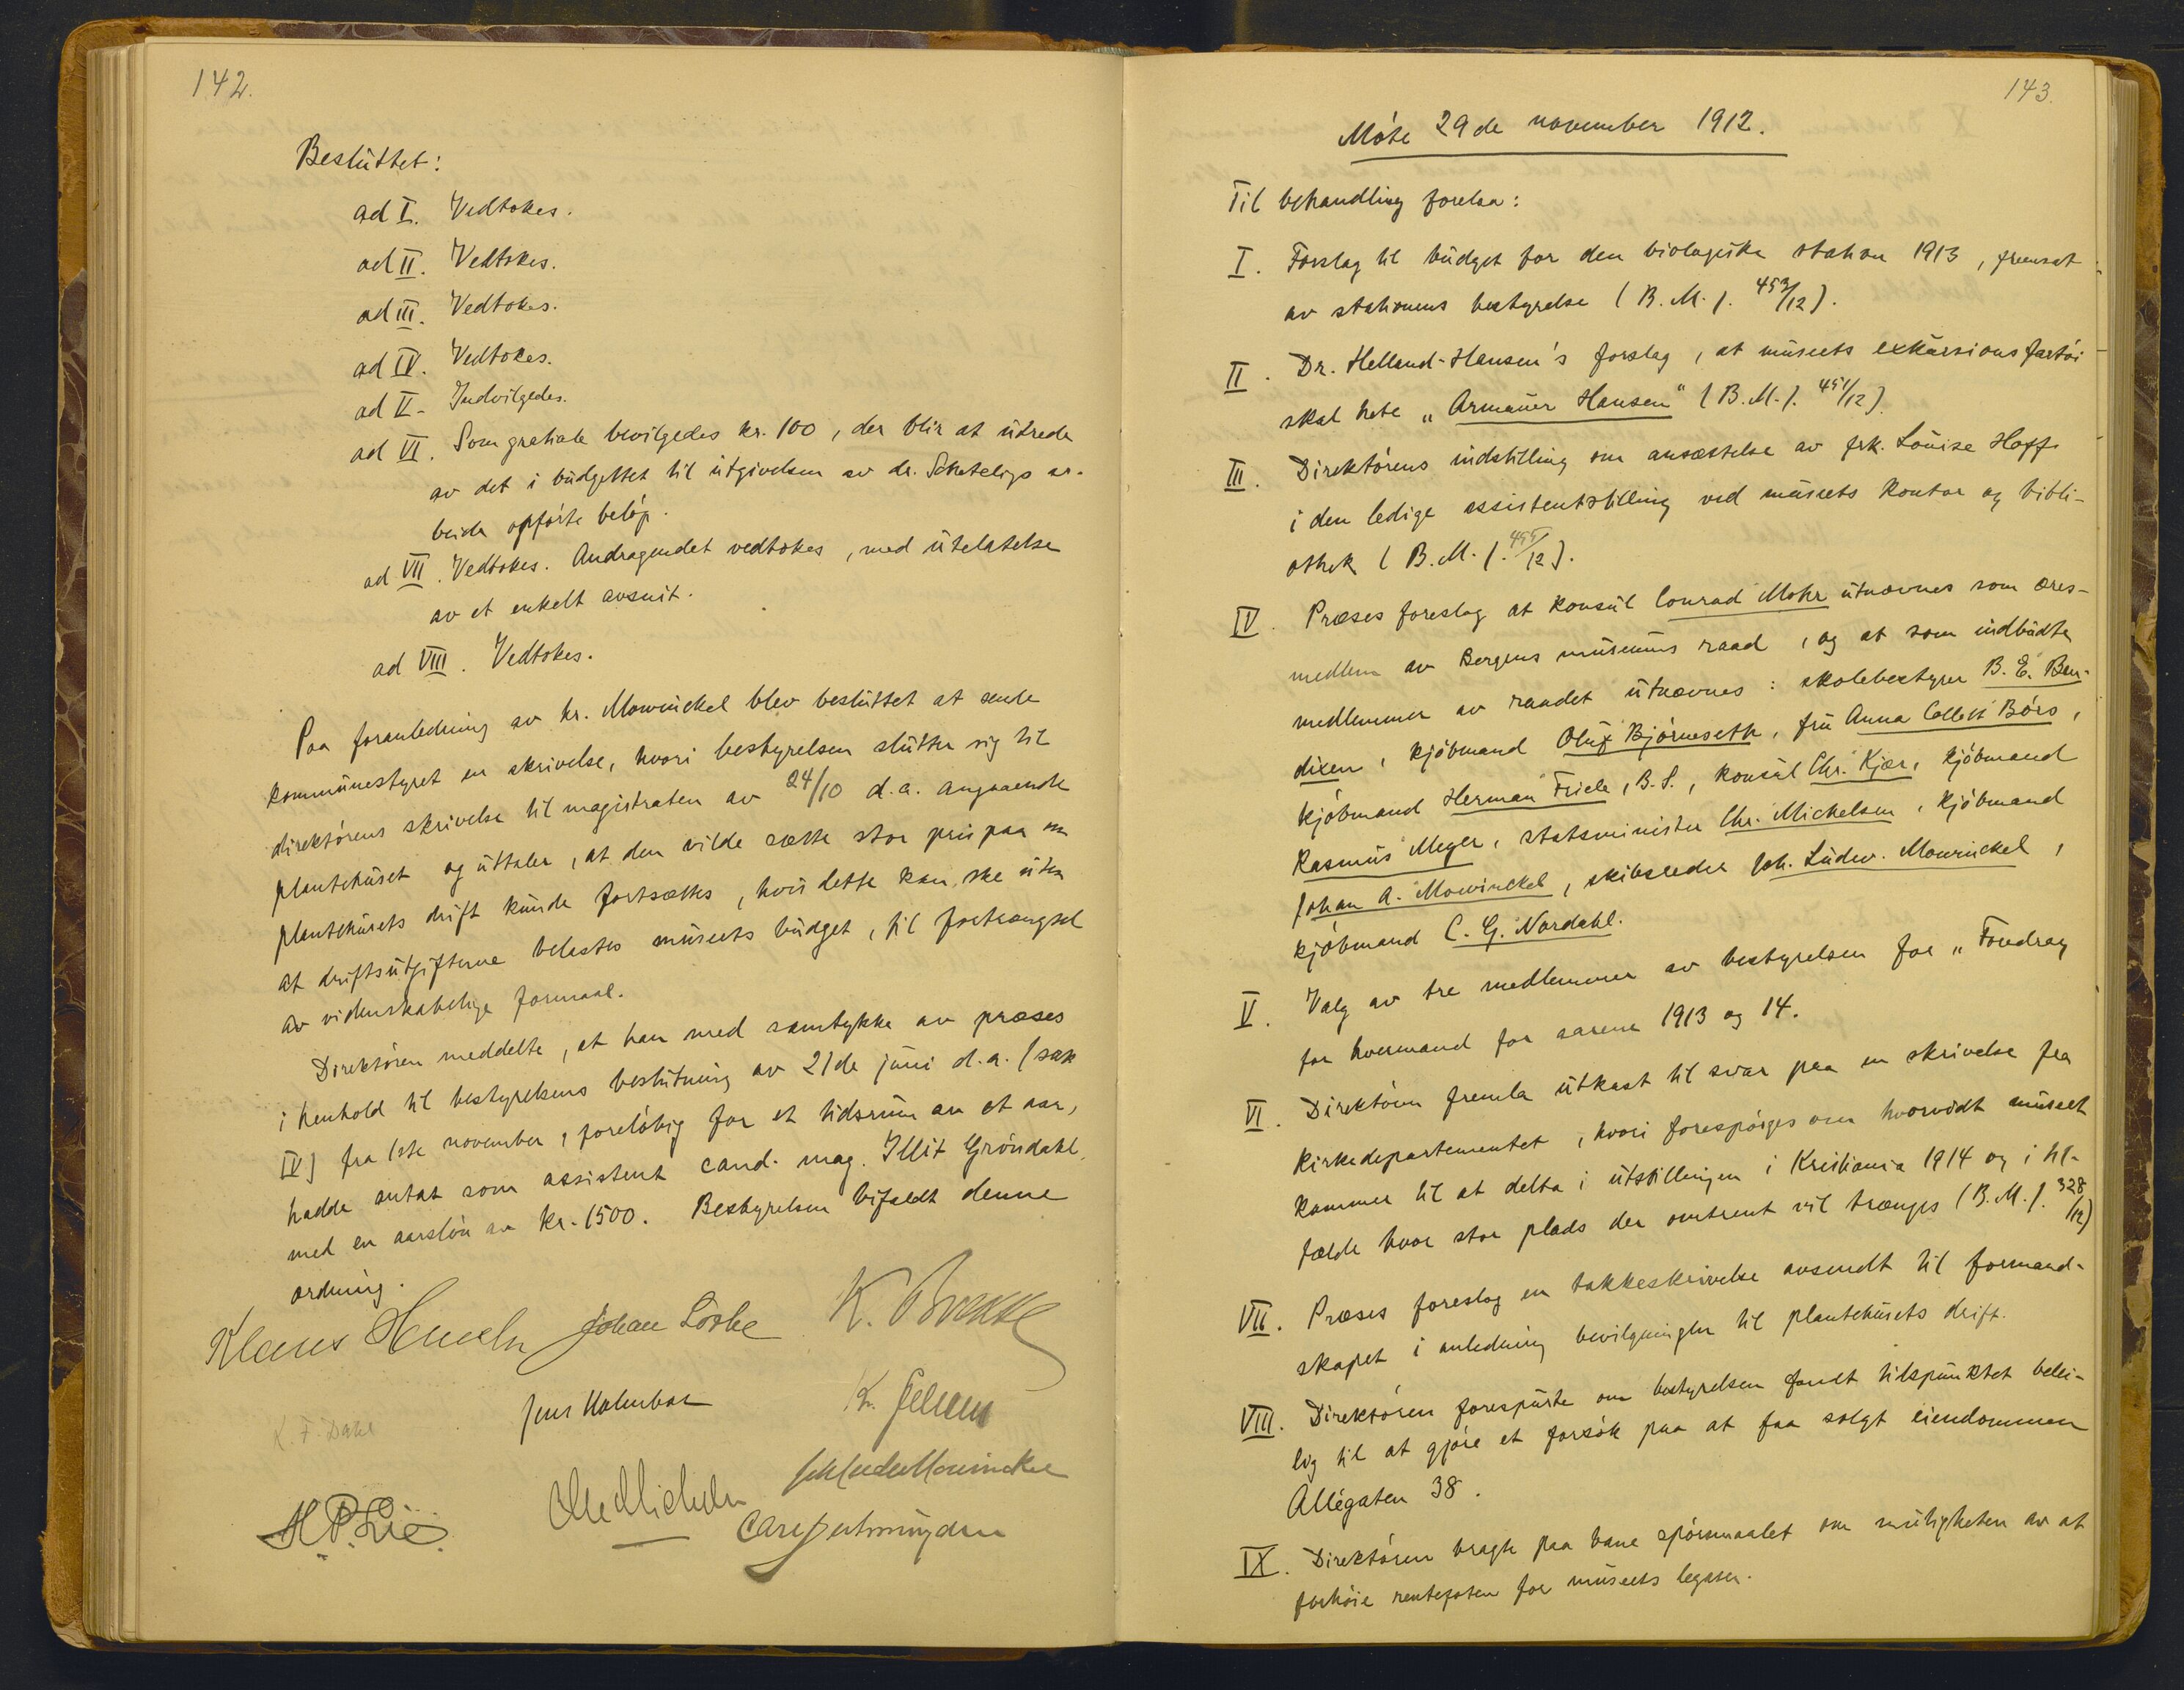 142.
Besluttet:
ad I. Vedtokes.
ad II. Vedtokes.
ad III. Vedtokes.
ad IV. Vedtokes.
ad V. Indvilgedes.
ad VI. Som gratiale bevilgedes kr. 100, der blir at utrede
av det i budgettet til utgivelsen av dr. Scheteligs ar-
beide opførte beløp.
ad VII. Vedtokes. Andragendet vedtokes, med utelatelse
av et enkelt avsnit.
ad VIII. Vedtokes.
Paa foranledning av hr. Mowinckel blev besluttet at sende
kommunestyret en skrivelse, hvori bestyrelsen slutter sig til
direktørens skrivelse til magistraten av 24/10 d.a. angaaende
plantehuset og uttaler, at den vilde sætte stor pris paa om
plantehusets drift kunde fortsættes, hvis dette kan ske uten
at driftsutgifterne belastes museets budget, til fortrængsel
av videnskabelige formaal.
Direktøren meddelte, at han med samtykke av præses
i henhold til bestyrelsens beslutning av 21de juni d.a. (sak
IV) fra 1ste november, foreløbig for et tidsrum av et aar,
hadde antat som assistent cand. mag. Illit Grøndahl
med en aarsløn av kr. 1500. Bestyrelsen bifaldt denne
ordning.
Klaus Hanssen Johan Lothe K. Brekke
K. F. Dahl Jens Holmboe
Joh Ludw Mowinckel
H. P. Lie. Chr Michelsen
143.
Møte 29de november 1912.
Til behandling forelaa:
I. Forslag til budget for den biologiske station 1913, fremsat
av stationens bestyrelse (B. M. J. 453/12).
II. Dr. Helland-Hansen's forslag, at museets exkursionsfartøi
skal hete "Armauer Hansen" (B. M. J. 451/12).
III. Direktørens indstilling om ansættelse av frk. Louise Hoff
i den ledige assistentstilling ved museets kontor og bibli-
othek (B. M. J. 455/12).
IV. Præses foreslog at konsul Conrad Mohr utnævnes som æres-
medlem av Bergens museums raad, og at som indbudte
medlemmer av raadet utnævnes: skolebestyrer B. E. Ben-
dixen, kjøbmand Oluf Bjørneseth, fru Anna Collett Børs,
kjøbmand Herman Friele, B. S., konsul Chr. Kjær, kjøbmand
Rasmus Meyer, statsminister Chr. Michelsen, kjøbmand
Johan A. Mowinckel, skibsreder Joh. Ludw. Mowinckel,
kjøbmand C. G. Nordahl.
V. Valg av tre medlemmer av bestyrelsen for "Foredrag
for hvermand for aarene 1913 og 14.
VI. Direktøren fremla utkast til svar paa en skrivelse fra
kirkedepartementet, hvori forespørges om hvorvidt museet
kommer til at delta i utstillingen i Kristiania 1914 og i til-
fælde hvor stor plads der omtrent vil trænges (B. M. J. 328/12)
VII. Præses foreslog en takkeskrivelse avsendt til formand-
skapet i anledning bevilgningen til plantehusets drift.
VIII. Direktøren forespurte om bestyrelsen fandt tidspunktet belei-
lig til at gjøre et forsøk paa at faa solgt eiendommen
Allégaten 38.
IX. Direktøren bragte paa bane spørsmaalet om muligheten av at
forhøie rentefoten for museets legater.